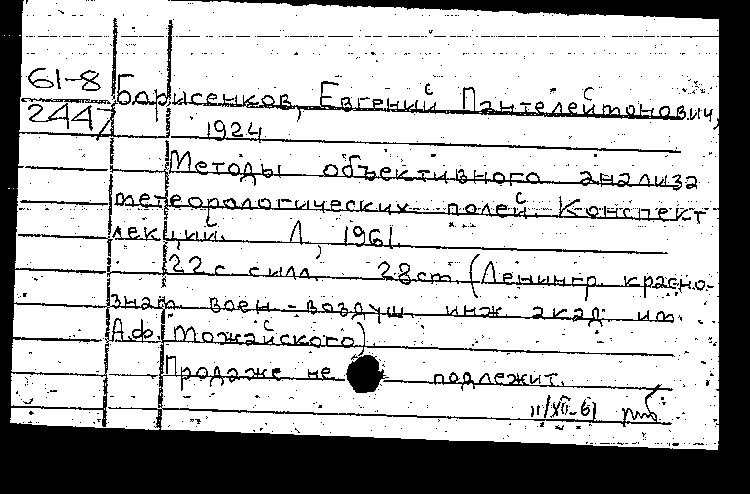 61-8
2447
Борисенков, Евгений Пантелеймонович,
1924
Методы объективного анализа
метеорологических полей. Конспект
лекций. Л., 1961.
22 с силл. 28 ст. (Ленингр. красно-
знам. воен.-воздуш. инж. акад. им.
А.Ф. Можайского)
Продаже не подлежит.
11/XII-61